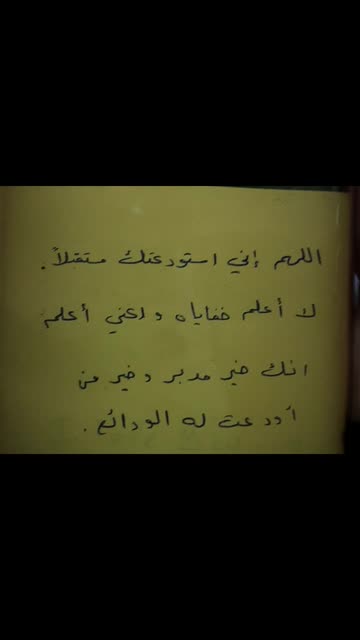 اللهم إني استودعتك مستقبلاً.
لا أعلم خفاياه ولكني أعلم
انك خير مدبر وخير من
أودعت له الودائع.